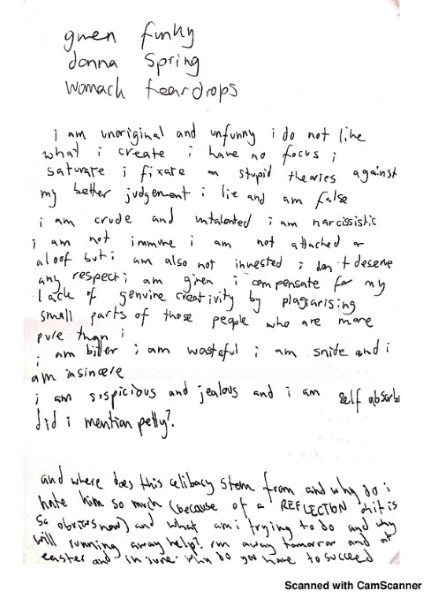 gwen funky
donna spring
womack teardrops
i am unoriginal and unfunny i do not like
what i create i have no focus i
saturate i fixate on stupid theories against
my better judgement i lie and am false
i am crude and untalented i am narcissistic
i am not immune i am not attached or
aloof but i am also not invested i don't deserve
any respect i am given i compensate for my
lack of genuine creativity by plagiarising
small parts of those people who are more
pure than i
i am bitter i am wasteful i am snide and i
am insincere
i am suspicious and jealous and i am self absorb
did i mention petty?
and where does this celibacy stem from and why do i
hate him so much (because of a REFLECTION it is
so obvious now) and what am i trying to do and why
will running away help? run away tomorrow and at
easter and in june. why do you have to succeed
Scanned with CamScanner